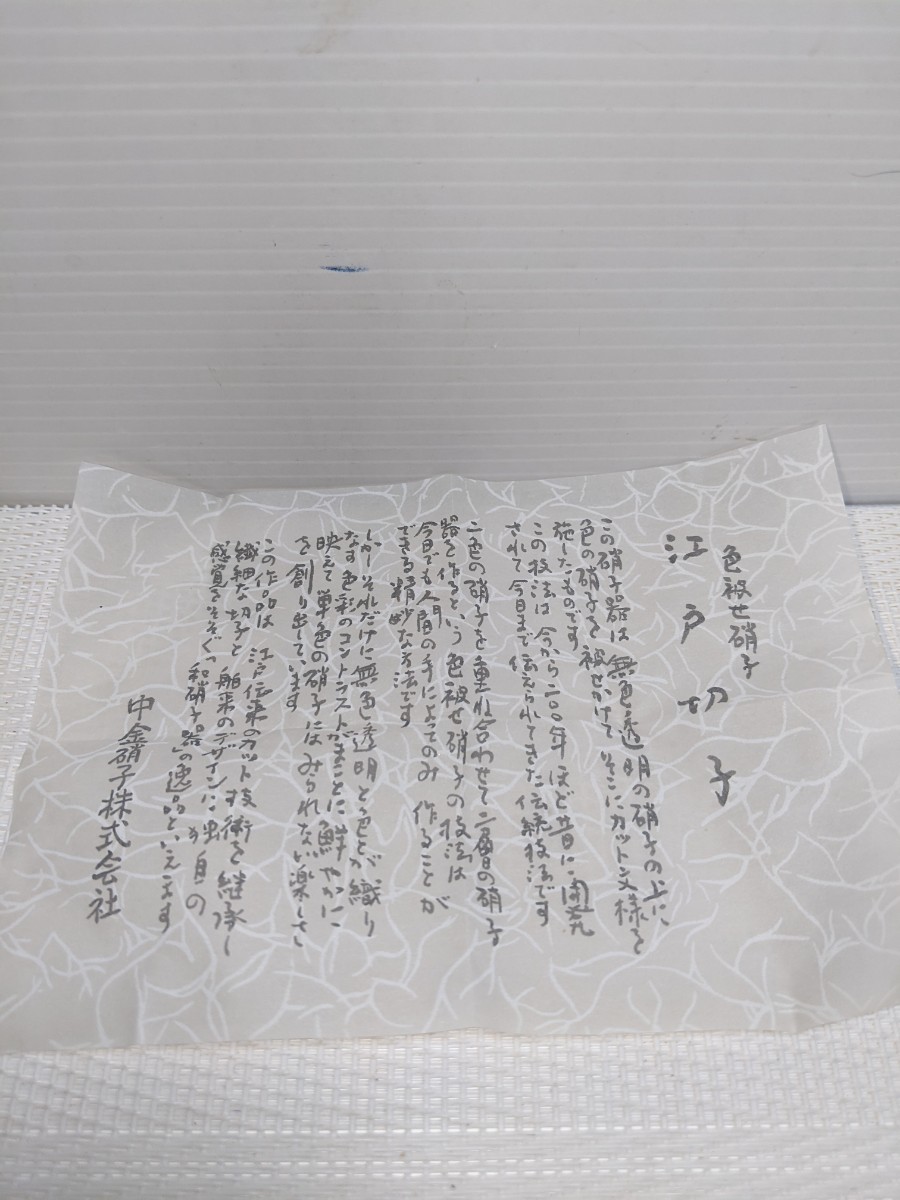 色被せ硝子
江戸切子
この硝子器は 無色透明の硝子の上に
色の硝子を被せかけて そこにカット文様を
施したものです
この技法は 今から二〇〇年ほど昔に開発
されて 今日まで伝えられてきた伝統技法です
二色の硝子を重ね合わせて二層の硝子
器を作るという 色被せ硝子の技法は
今日でも人間の手によってのみ 作ることが
できる精妙な方法です
しかし それだけに無色透明と色とが織り
なす色彩のコントラストがまことに鮮やかに
映えて 単色の硝子にはみられない楽しさ
を創り出しています
この作品は 江戸伝来のカット技術を継承し
繊細な切子と 舶来のデザインに独自の
感覚をそそぐ「和硝子器」の逸品といえます
中金硝子株式会社